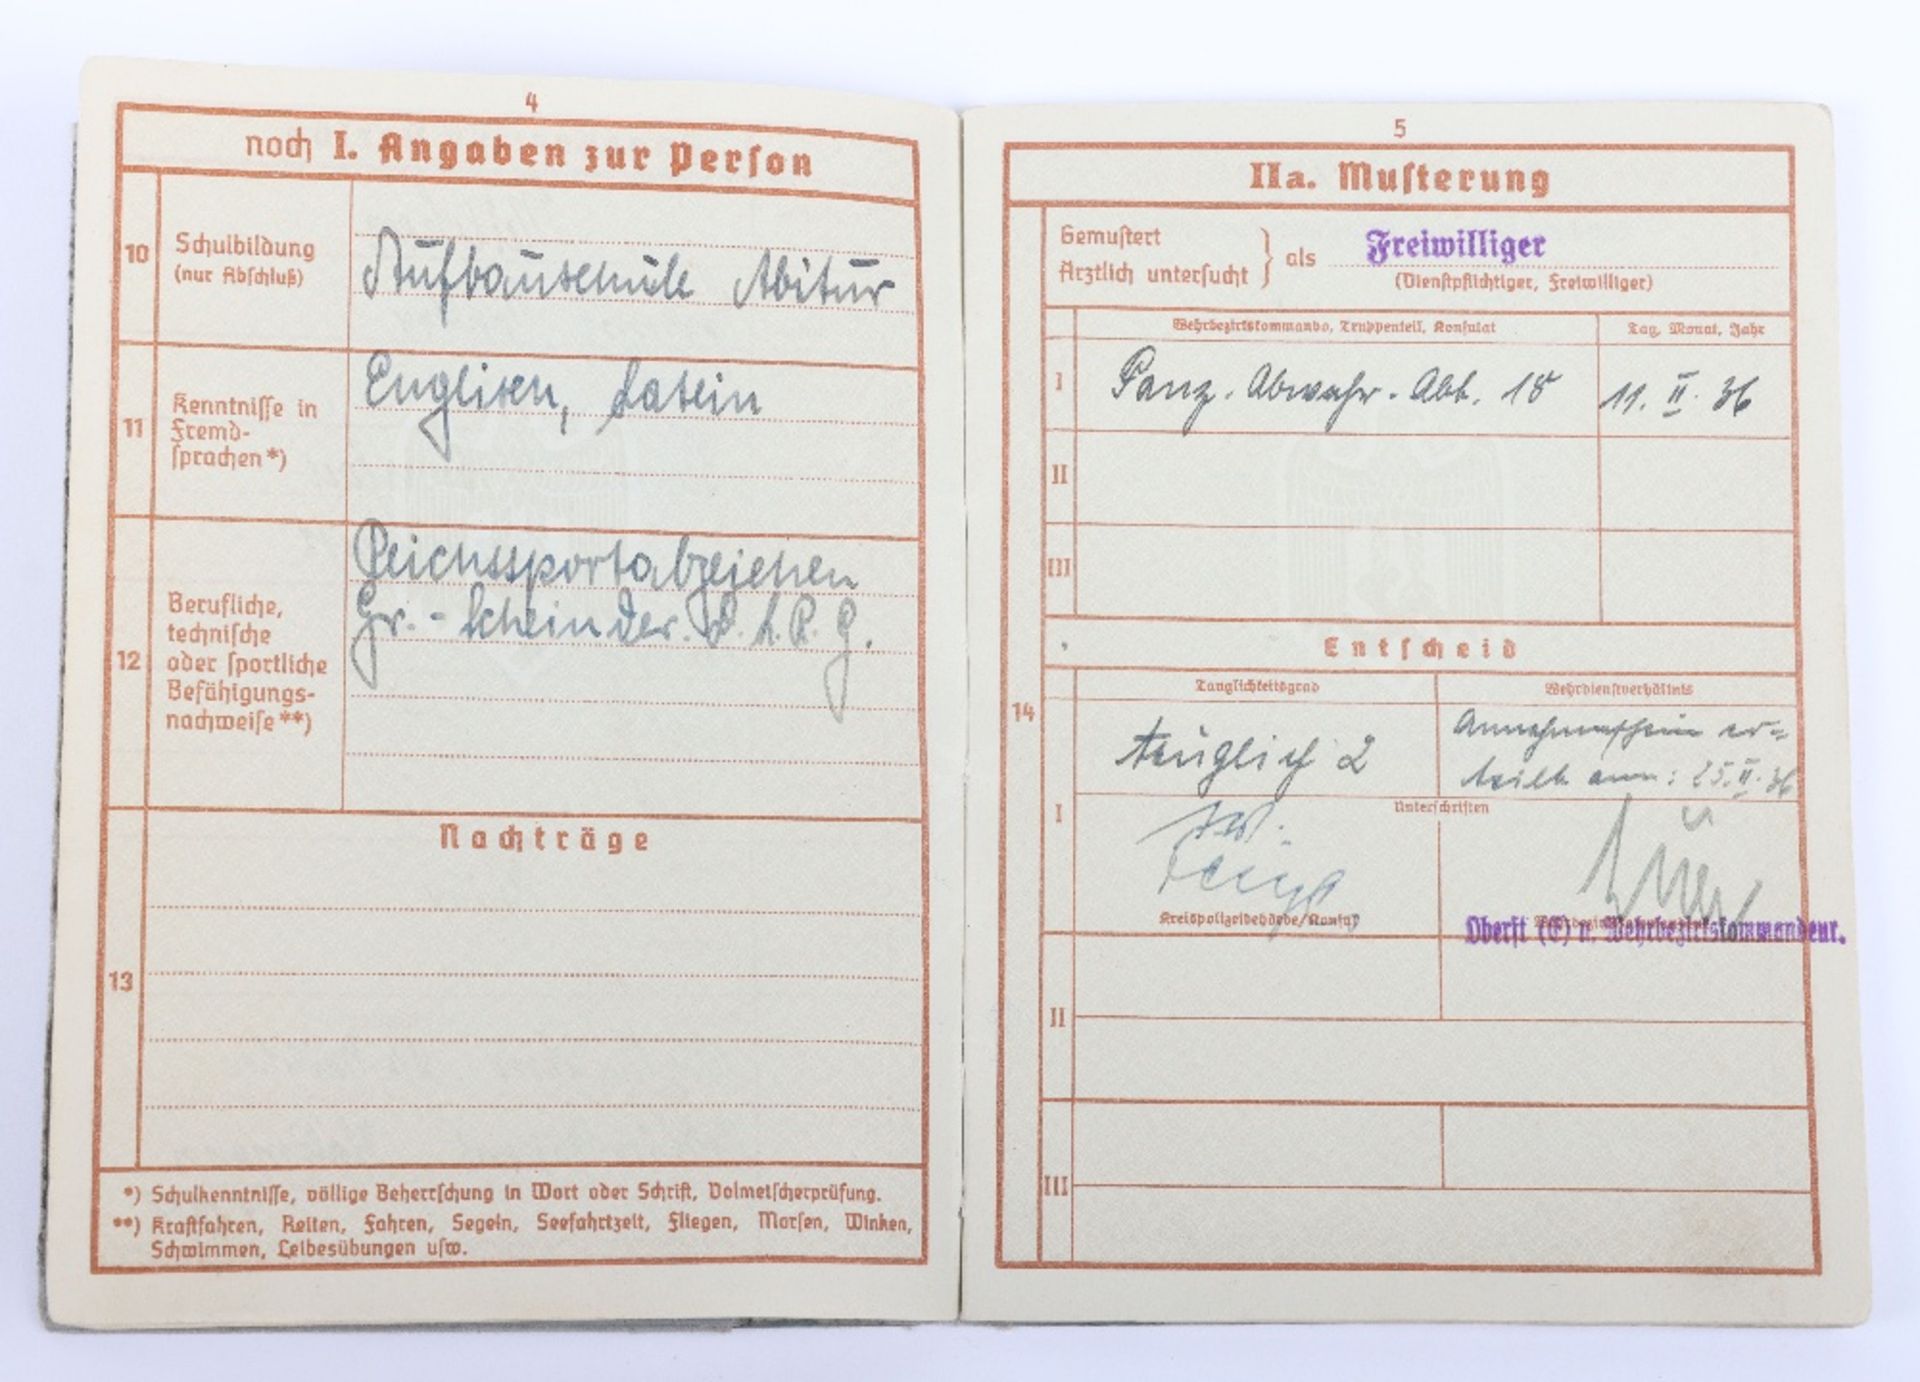 4
noch I. Angaben zur Person
10
Schulbildung
(nur Abschluß)
Aufbauschule Abitur
11
Kenntnisse in
Fremd-
sprachen *)
Englisch, Latein
12
Berufliche,
technische
oder sportliche
Befähigungs-
nachweise **)
Reichssportabzeichen
Gr. - Schein der D. L. R. G.
Nachträge
13
*) Schulkenntnisse, völlige Beherrschung in Wort oder Schrift, Dolmetscherprüfung.
**) Kraftfahren, Reiten, Fahren, Segeln, Seefahrtzeit, Fliegen, Morsen, Winken,
Schwimmen, Leibesübungen usw.
5
IIa. Musterung
Gemustert
Ärztlich untersucht } als Freiwilliger
(Dienstpflichtiger, Freiwilliger)
Wehrbezirkskommando, Truppenteil, Konsulat
Tag, Monat, Jahr
I
Panz. Abwehr. Abt. 18
11. II. 36
II
III
Entscheid
14
Tauglichkeitsgrad
Wehrdienstverhältnis
I
tauglich 2
Annahmeschein er=
teilt am: 25. II. 36
Unterschriften
Kreispolizeibehörde/Konsul
Oberst (E) u. Wehrbezirkskommandeur.
II
III